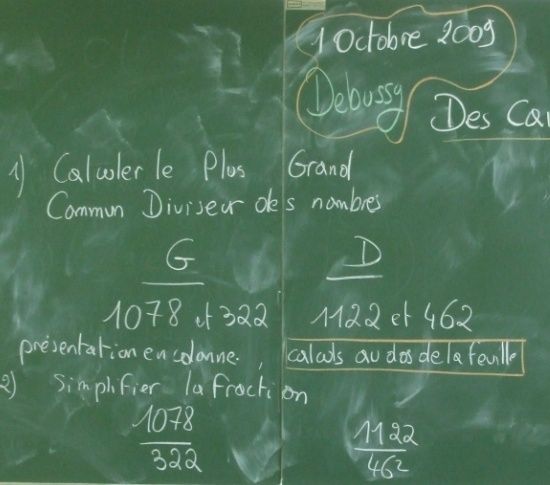 1 Octobre 2009
Debussy
Des
1) Calculer le Plus Grand
Commun Diviseur des nombres
G D
1078 et 322 1122 et 462
présentation en colonne. calculs au dos de la feuille
2) Simplifier la fraction
1078 1122
322 462